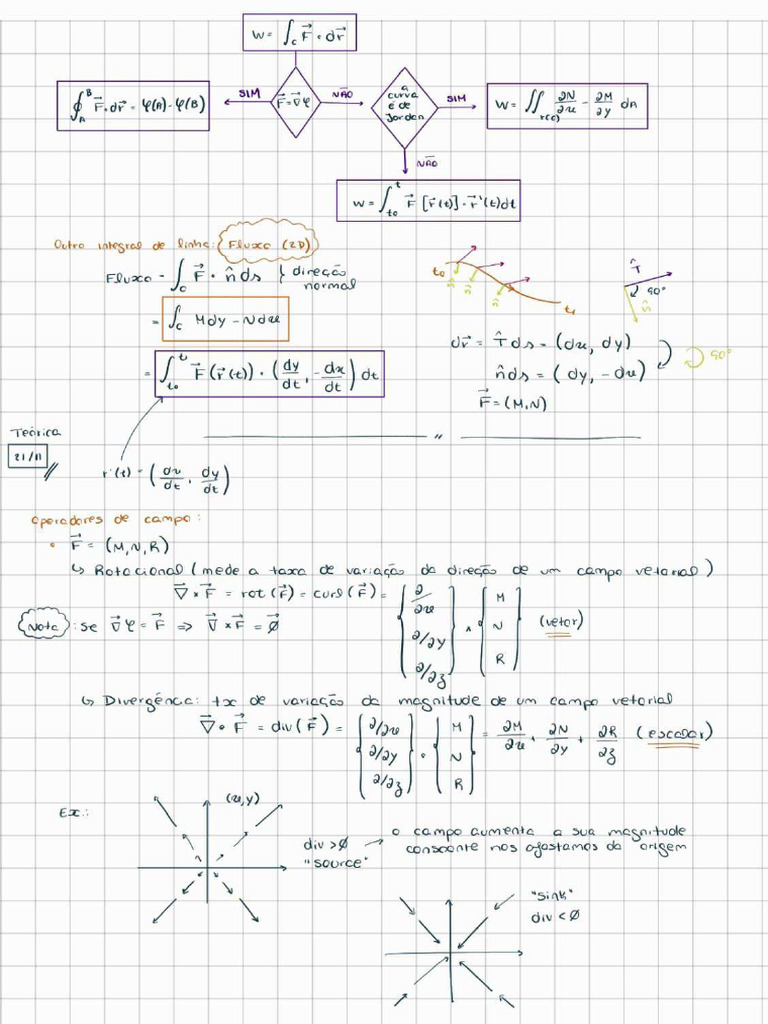 W = ∫_C F⃗ · dr⃗
∮_A^B F⃗ · dr⃗ = φ(A) - φ(B)
SIM
F⃗ = ∇⃗φ
NÃO
a curva é de Jordan
SIM
W = ∬_{r(c)} ∂N/∂x - ∂M/∂y dA
NÃO
W = ∫_{t0}^{t} F⃗ [r⃗(t)] · r⃗'(t) dt
Outro integral de linha: Fluxo (2D)
Fluxo = ∫_C F⃗ · n̂ ds } direção normal
t0
n̂
n̂
n̂
t1
T̂
90°
n̂
= ∫_C M dy - N dx
dr⃗ = T̂ ds = (dx, dy)
90°
= ∫_{t0}^{t} F⃗ (r⃗(t)) · (dy/dt, -dx/dt) dt
n̂ ds = (dy, -dx)
F⃗ = (M,N)
Teórica
21/11
r'(t) = (dx/dt, dy/dt)
Operadores de campo:
• F⃗ = (M,N,R)
↳ Rotacional (mede a taxa de variação da direção de um campo vetorial)
∇⃗ × F⃗ = rot (F⃗) = curl (F⃗) = {∂/∂x ∂/∂y ∂/∂z} ∧ {M N R} (vetor)
Nota: se ∇⃗φ = F⃗ ⇒ ∇⃗ × F⃗ = 0⃗
↳ Divergência: tx de variação da magnitude de um campo vetorial
∇⃗ · F⃗ = div (F⃗) = {∂/∂x ∂/∂y ∂/∂z} · {M N R} = ∂M/∂x + ∂N/∂y + ∂R/∂z (escalar)
Ex.:
(x,y)
div > 0
"source"
o campo aumenta a sua magnitude
consoante nos afastamos da origem
"sink"
div < 0